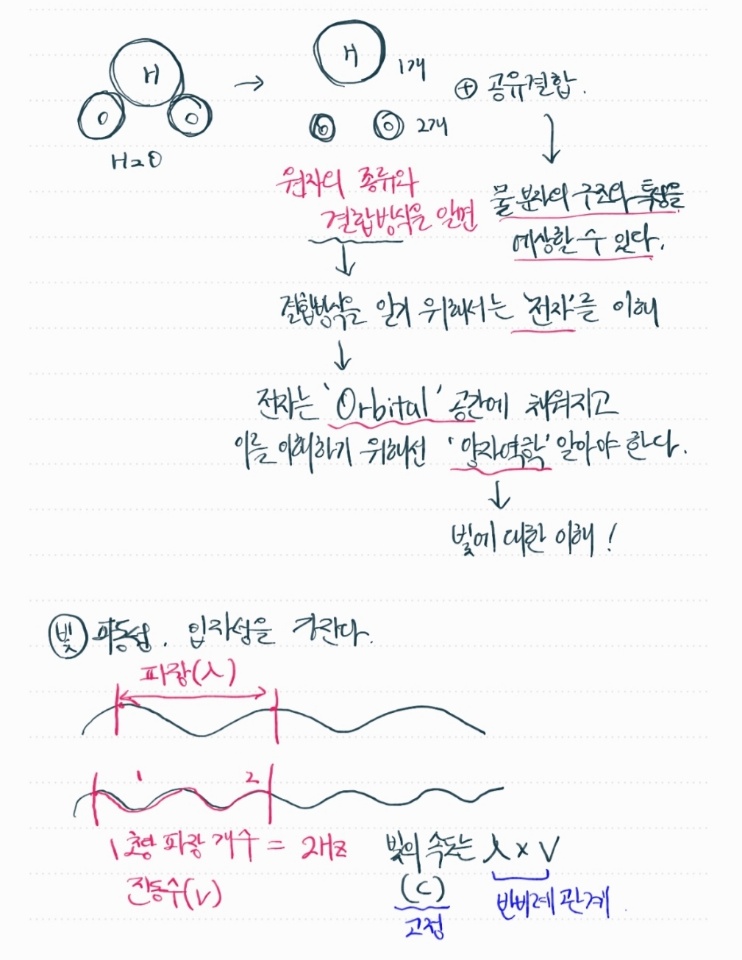 H
O
O
H₂O
→
H
1개
O
O
2개
⊕ 공유결합.
원자의 종류와
결합방식을 알면
물 분자의 구조와 특성을
예상할 수 있다.
결합방식을 알기 위해서는 '전자'를 이해
전자는 'Orbital' 공간에 채워지고
이를 이해하기 위해선 '양자역학' 알아야 한다.
빛에 대한 이해!
빛 파동성, 입자성을 가진다.
파장(λ)
1 2
1초당 파장 개수 = 2Hz
진동수(ν)
빛의 속도는 λ × ν
(C)
고정
반비례 관계.